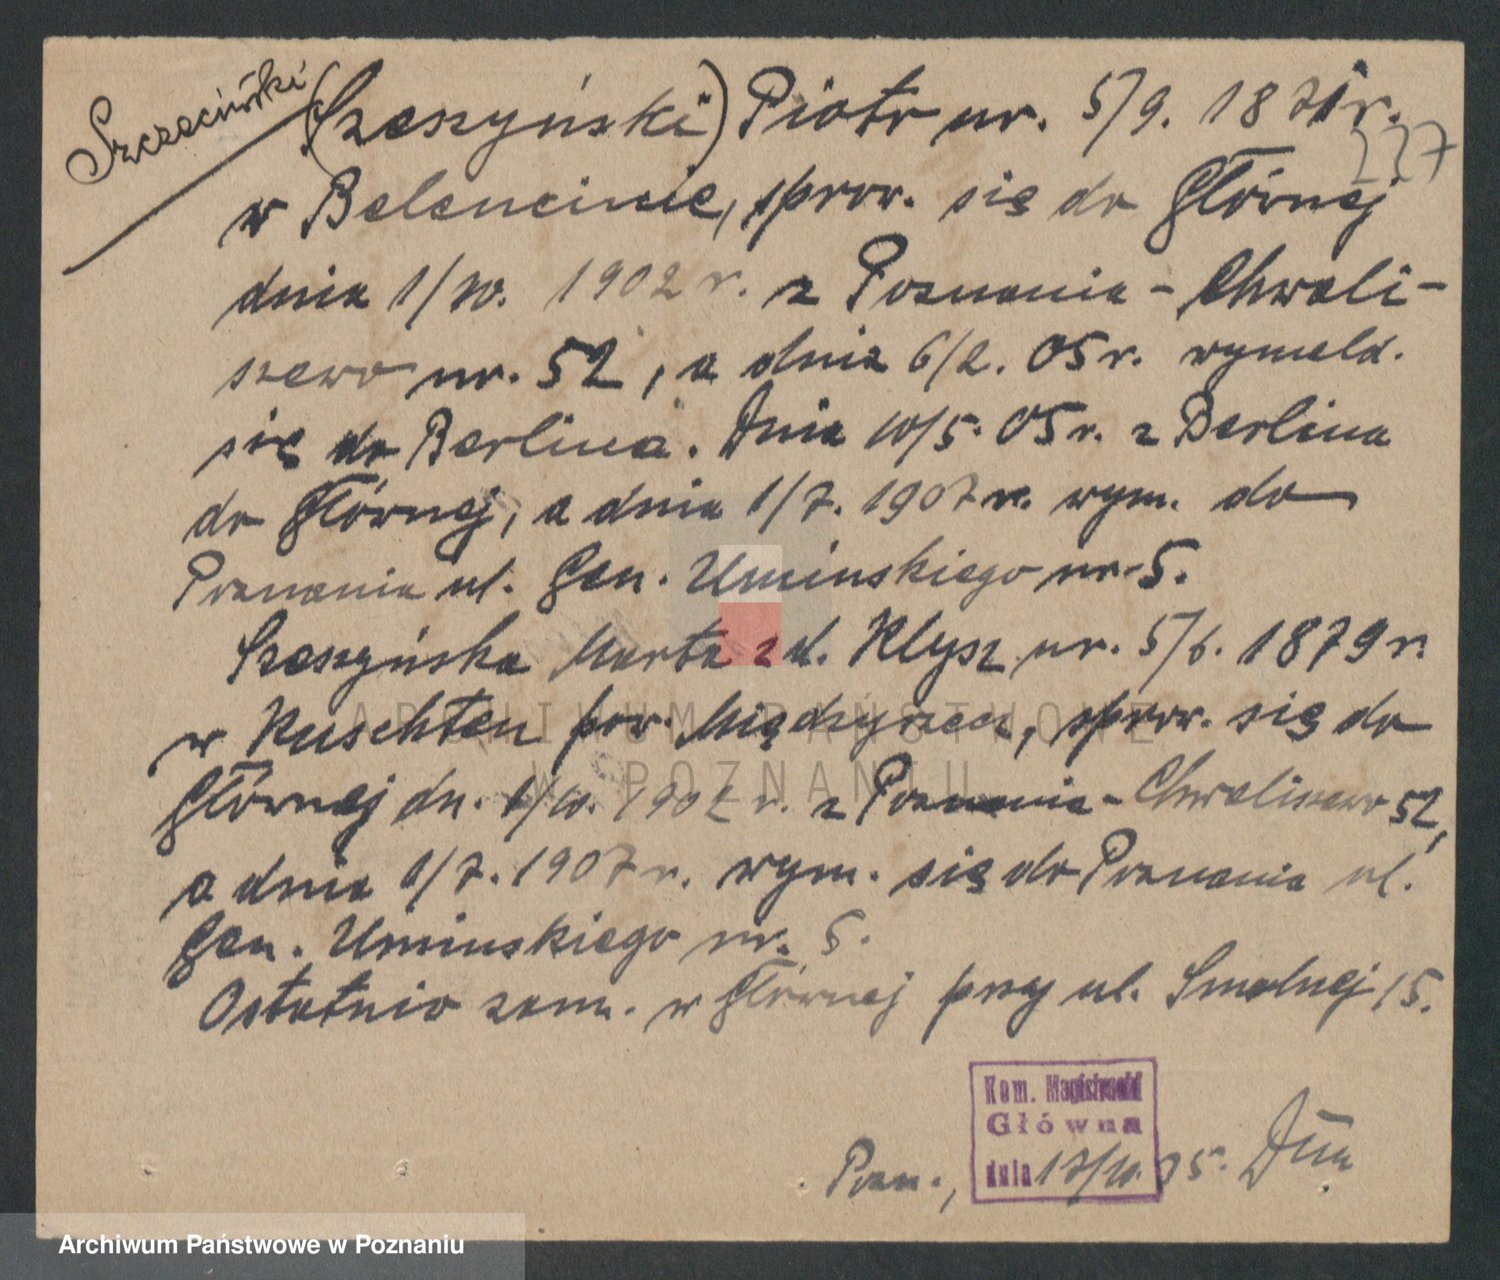 Szczeciński (Szeszyński) Piotr ur. 5/9. 1871 r.
227
w Belencinie, sprow. się do Głównej
dnia 1/10. 1902 r. z Poznania - Chwali-
szewo nr. 52, a dnia 6/2. 05 r. wymeld.
się do Berlina. Dnia 10/5. 05 r. z Berlina
do Głównej, a dnia 1/7. 1907 r. wym. do
Poznania ul. Gen. Umińskiego nr. 5.
Szeszyńska Marta z d. Klysz ur. 5/6. 1879 r.
w Kuschten pow. Międzyrzecz, sprow. się do
Głównej dn. 1/10. 1902 r. z Poznania - Chwaliszewo 52,
a dnia 1/7. 1907 r. wym. się do Poznania ul.
Gen. Umińskiego nr. 5.
Ostatnio zam. w Głównej przy ul. Smolnej 15.
Kom. Magistracki
Główna
Pozn., dnia 17/10. 35.
ARCHIWUM PAŃSTWOWE
W POZNANIU
Archiwum Państwowe w Poznaniu